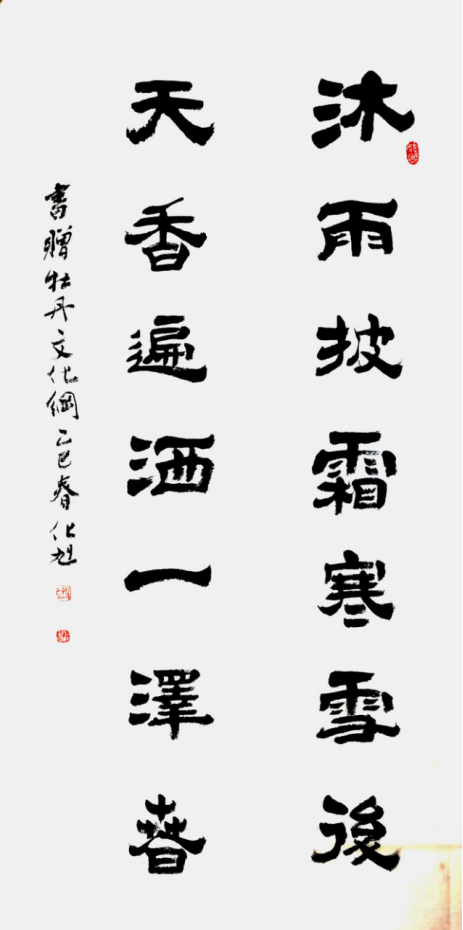 沐雨披霜寒雪後
天香遍洒一澤春
書贈牡丹文化網乙巳春化旭